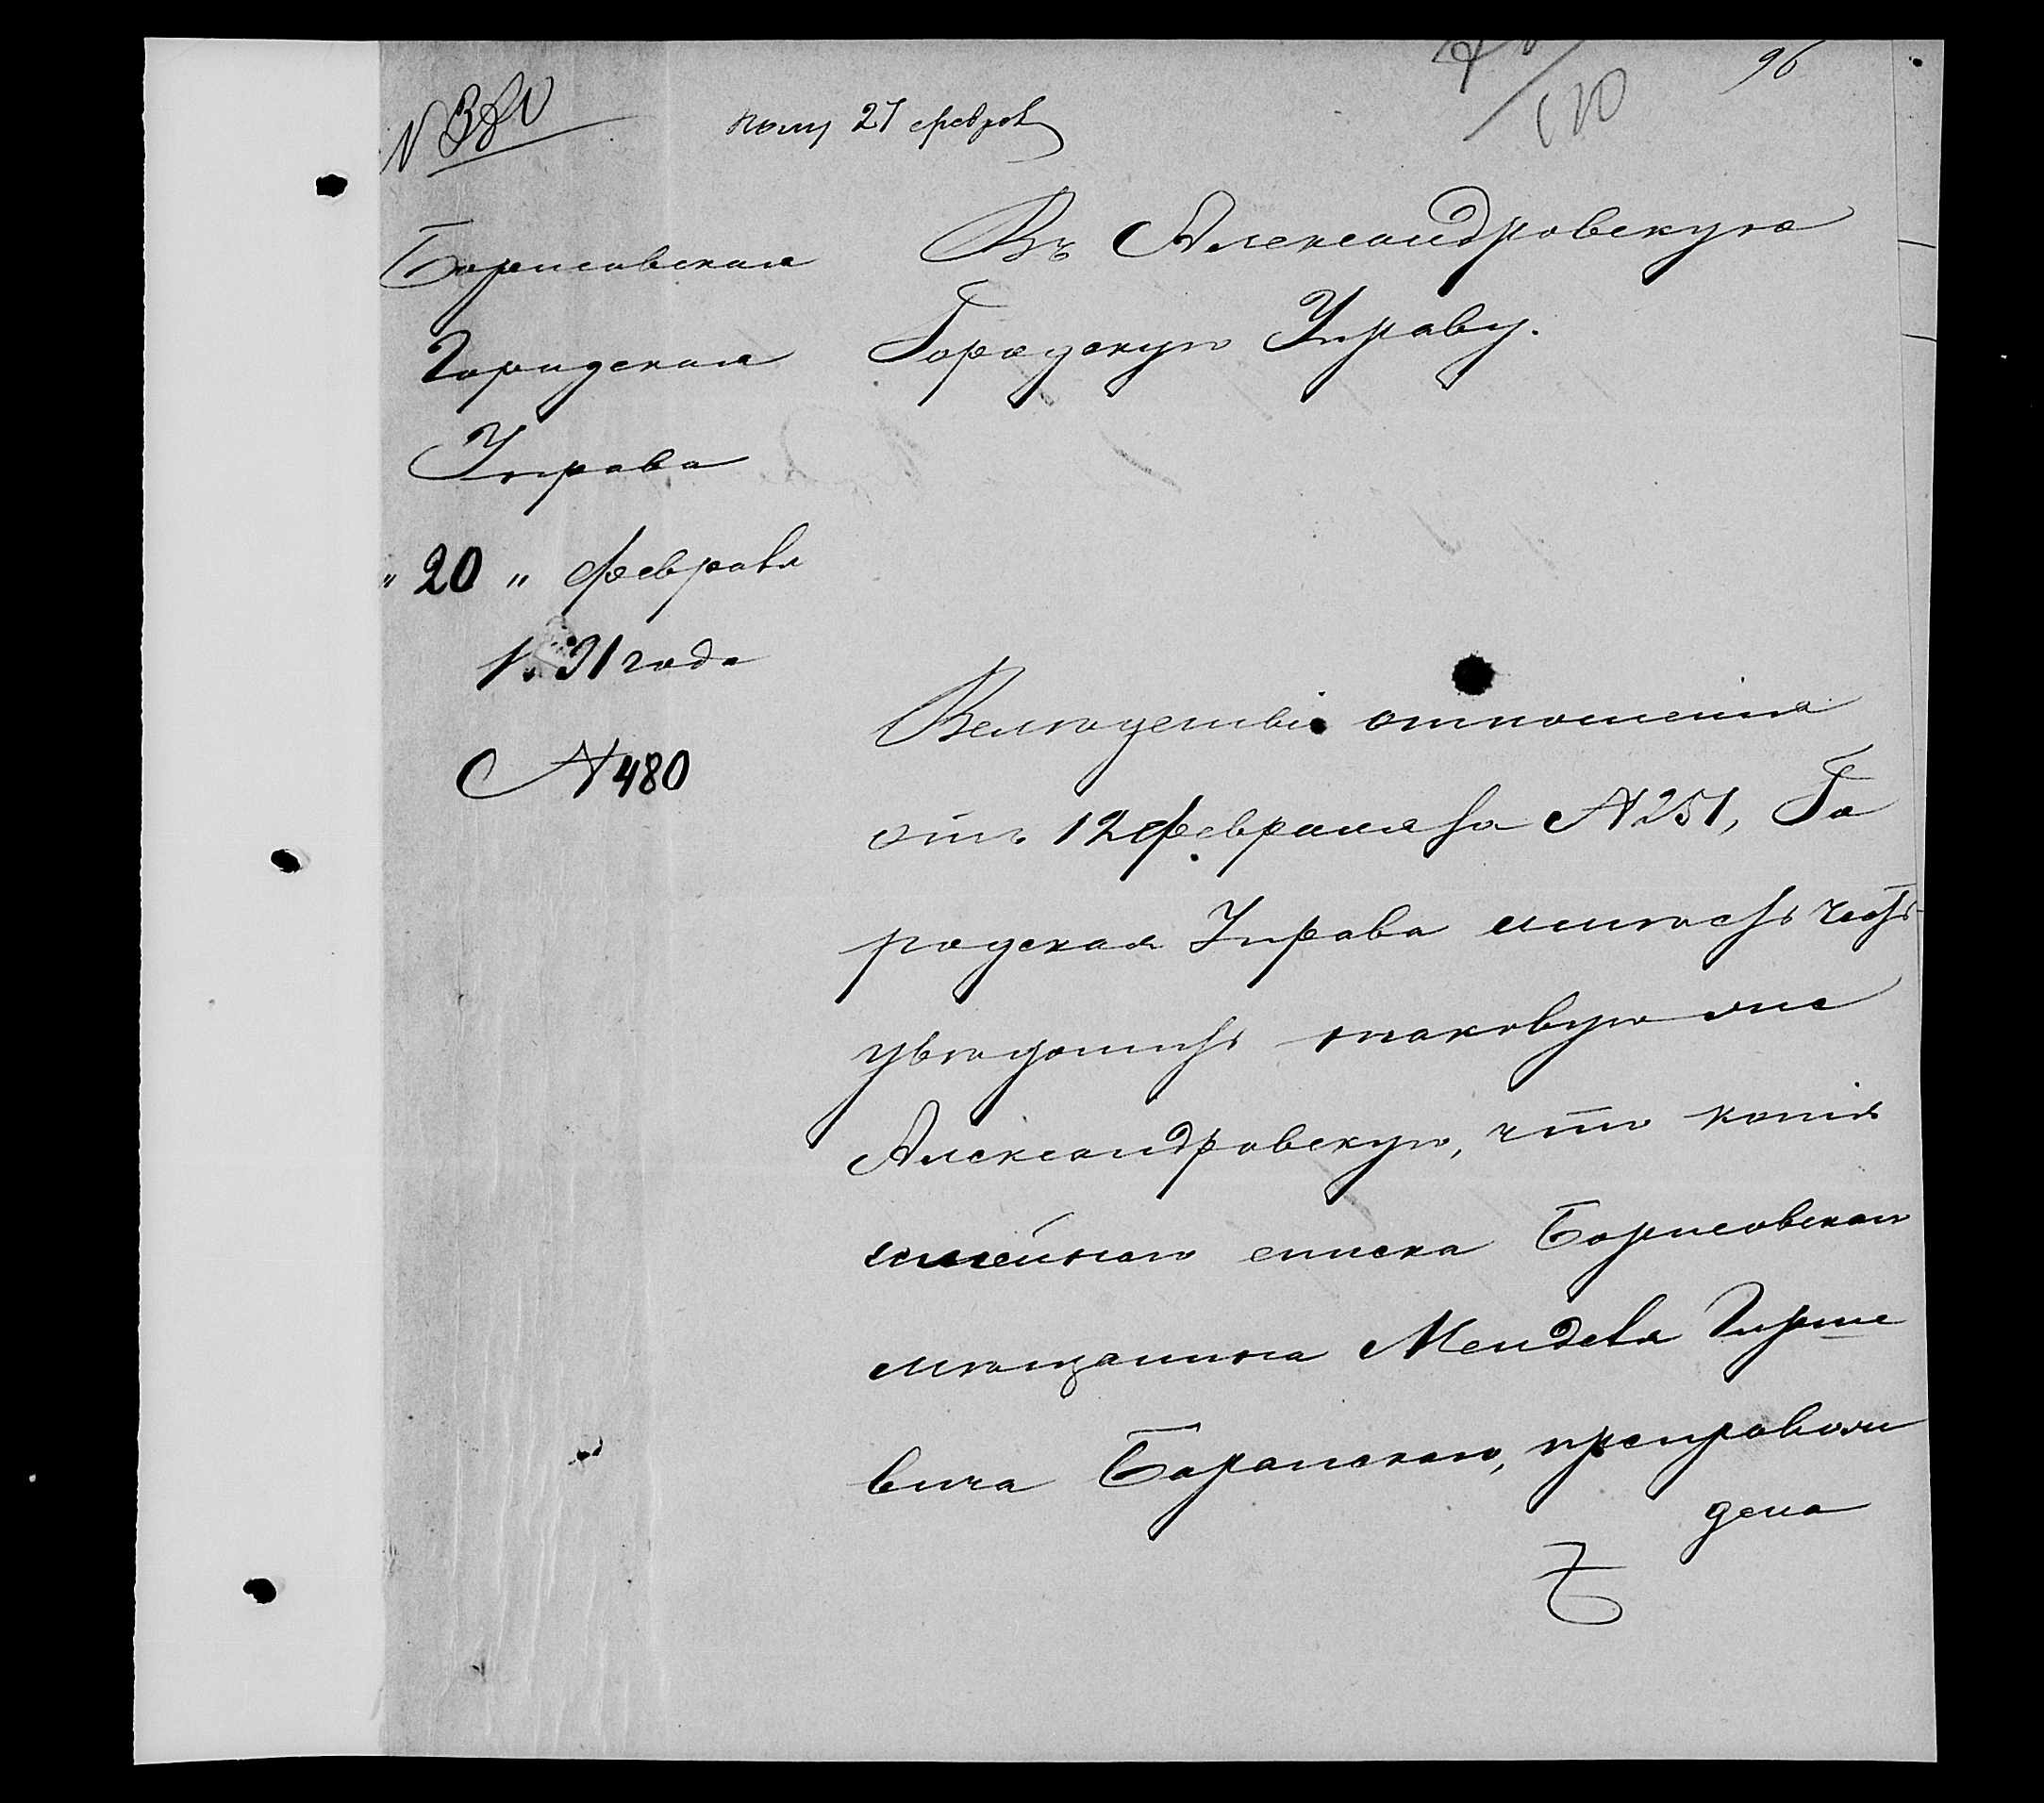 96
полу 27 февраля
Борисовская
Городская
Управа
"20" февраля
1891 года
№ 480
Въ Александровскую
Городскую Управу.
Вслѣдствіе отношенія
отъ 12 февраля за № 251, Го
родская Управа имѣетъ честь
увѣдомить таковую же
Александровскую, что копія
семейнаго списка Борисовскаго
мѣщанина Менделя Гирше
вича Баранскаго, препровож
дена